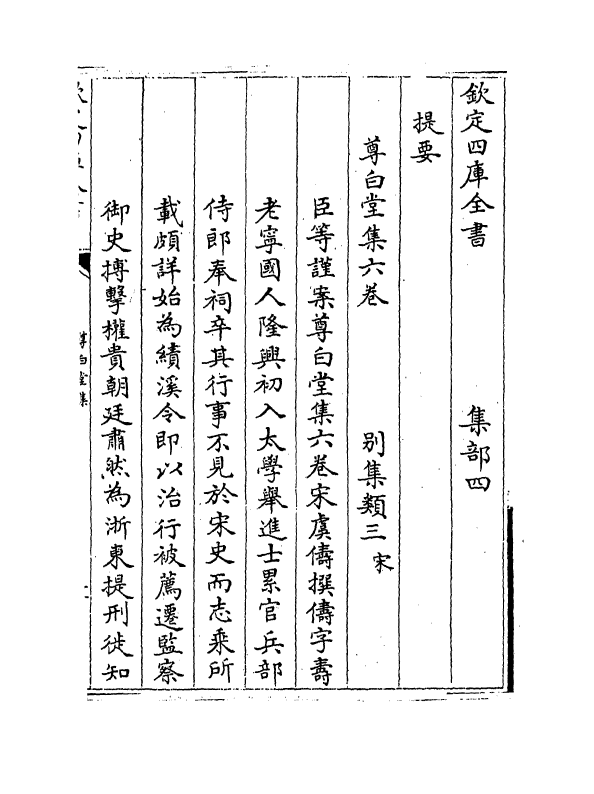 欽定四庫全書　集部四
提要
尊白堂集六卷　別集類三宋
臣等謹案尊白堂集六卷宋虞儔撰儔字壽
老寧國人隆興初入太學舉進士累官兵部
侍郎奉祠卒其行事不見於宋史而志乘所
載頗詳始為績溪令即以治行被薦遷監察
御史搏擊權貴朝廷肅然為浙東提刑徙知
尊白堂集